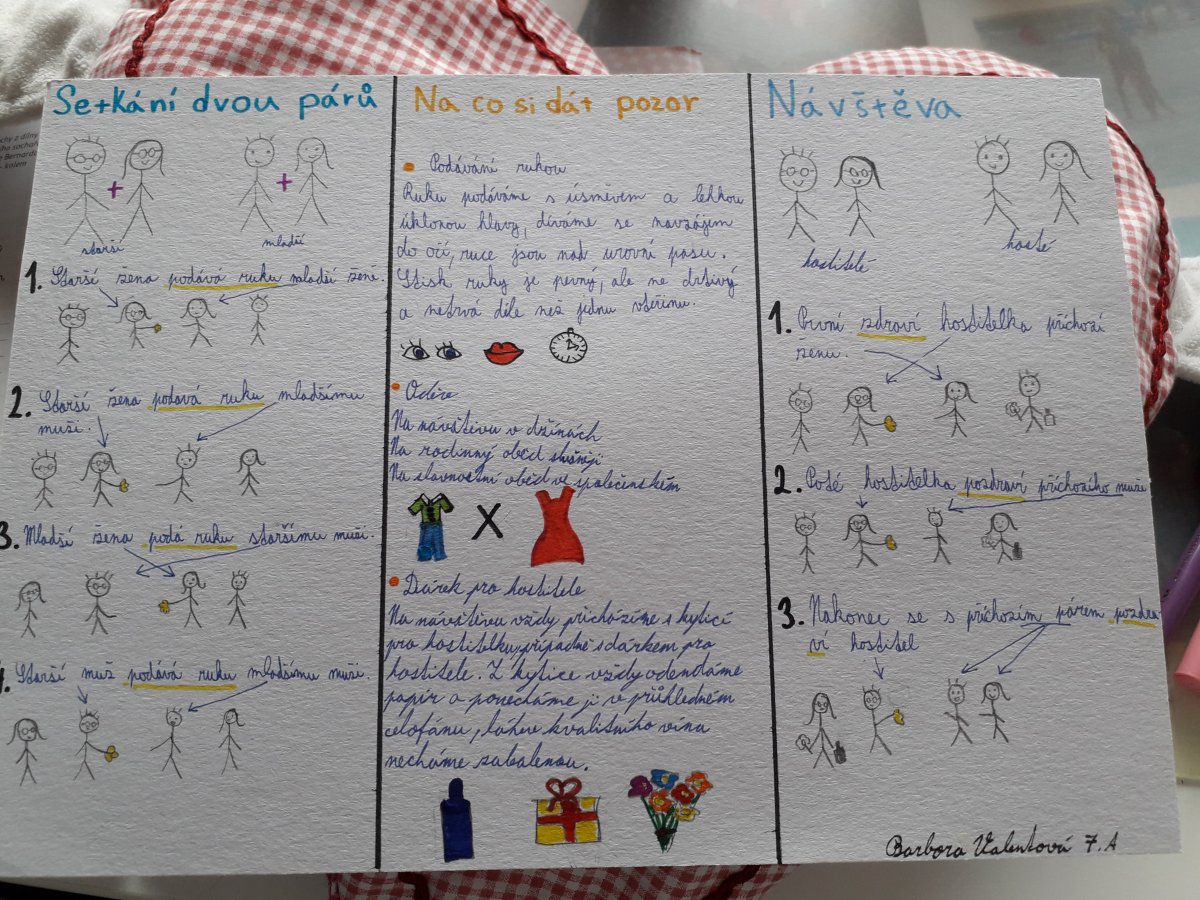 Setkání dvou párů
starší
mladší
1. Starší žena podává ruku mladší ženě.
2. Starší žena podává ruku mladšímu
muži.
3. Mladší žena podá ruku staršímu muži.
4. Starší muž podává ruku mladšímu muži.
Na co si dát pozor
Podávání rukou
Ruku podáváme s úsměvem a lehkou
úklonou hlavy, díváme se navzájem
do očí, ruce jsou nad úrovní pasu.
Stisk ruky je pevný, ale ne drtivý
a netrvá déle než jednu vteřinu.
Oděv
Na návštěvu v džínách
Na rodinný oběd slušněji
Na slavnostní oběd ve společenském
X
Dárek pro hostitele
Na návštěvu vždy přicházíme s kyticí
pro hostitelku, případně s dárkem pro
hostitele. Z kytice vždy odendáme
papír a ponecháme ji v průhledném
celofánu, láhev kvalitního vína
necháme zabalenou.
Návštěva
hostitelé
hosté
1. První zdraví hostitelka příchozí
ženu.
2. Poté hostitelka pozdraví příchozího muže
3. Nakonec se s příchozím párem pozdra-
ví hostitel
Barbora Valentová 7.A